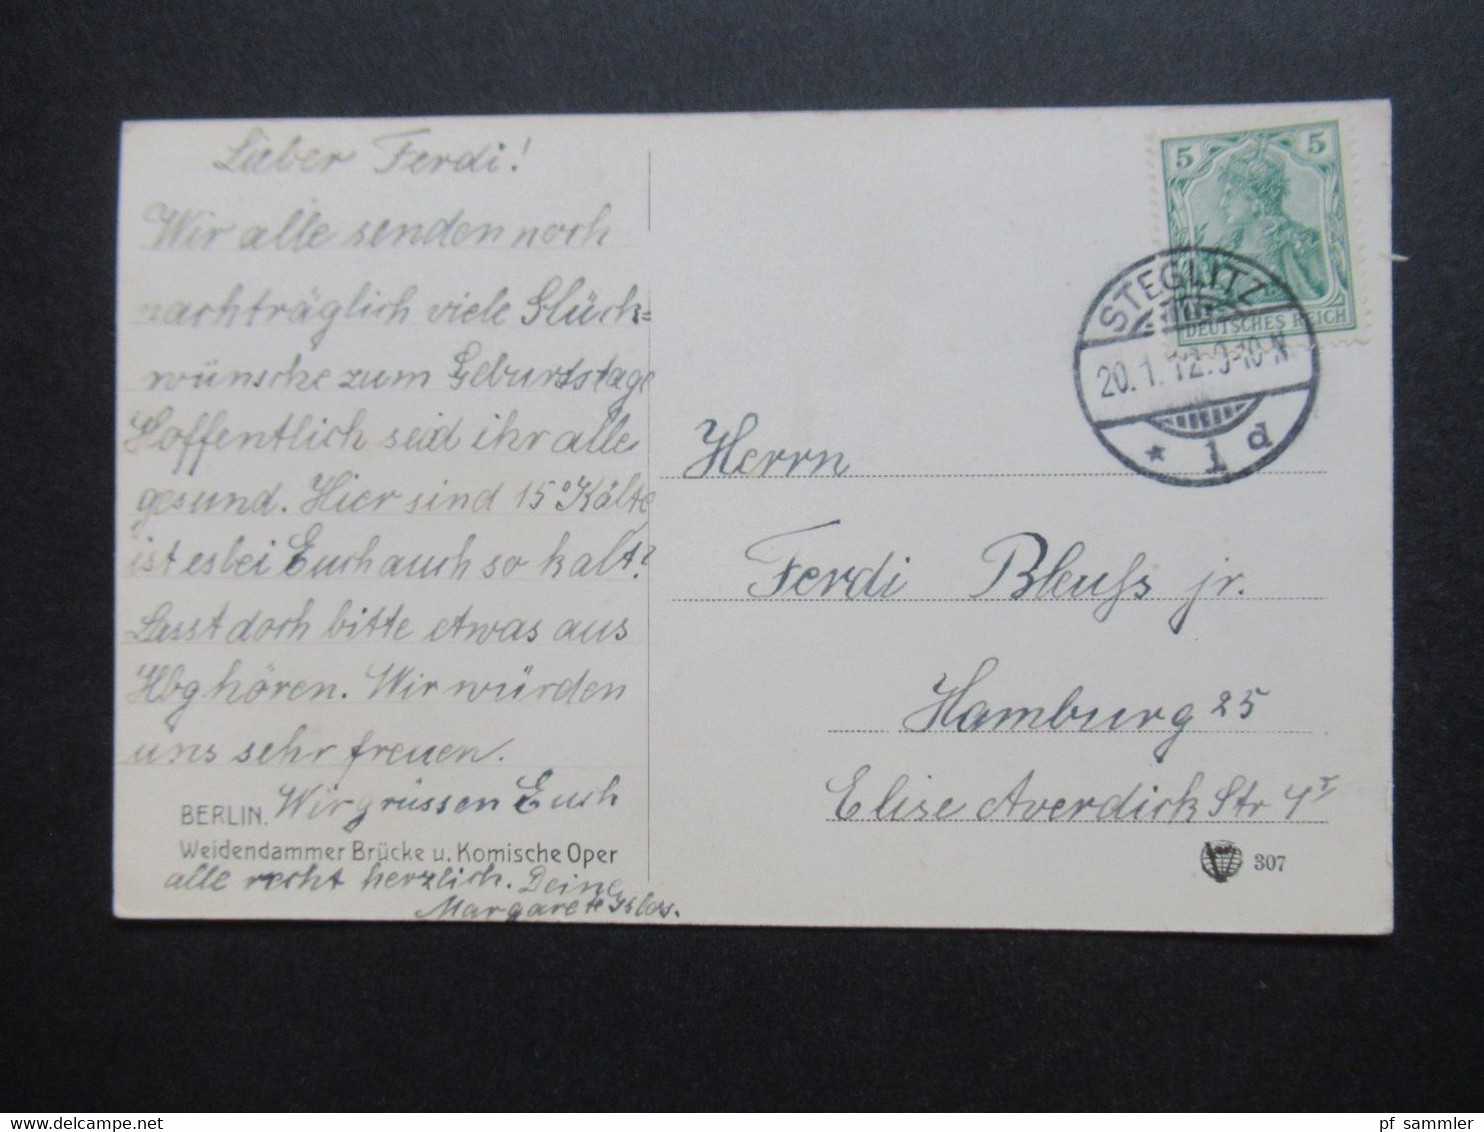 Lieber Ferdi!
Wir alle senden noch
nachträglich viele Glück=
wünsche zum Geburtstage
Hoffentlich seid ihr alle
gesund. Hier sind 15° Kälte
ist es bei Euch auch so kalt?
Lasst doch bitte etwas aus
Hbg hören. Wir würden
uns sehr freuen.
Wir grüssen Euch
BERLIN.
Weidendammer Brücke u. Komische Oper
alle recht herzlich. Deine
Margarete
5 5
DEUTSCHES REICH
STEGLITZ
20.1.12. 9-10 N
* 1 d
Herrn
Ferdi Bleuss jr.
Hamburg 25
Elise Averdick Str 4 I
307
pf_sammler
delcampe.net